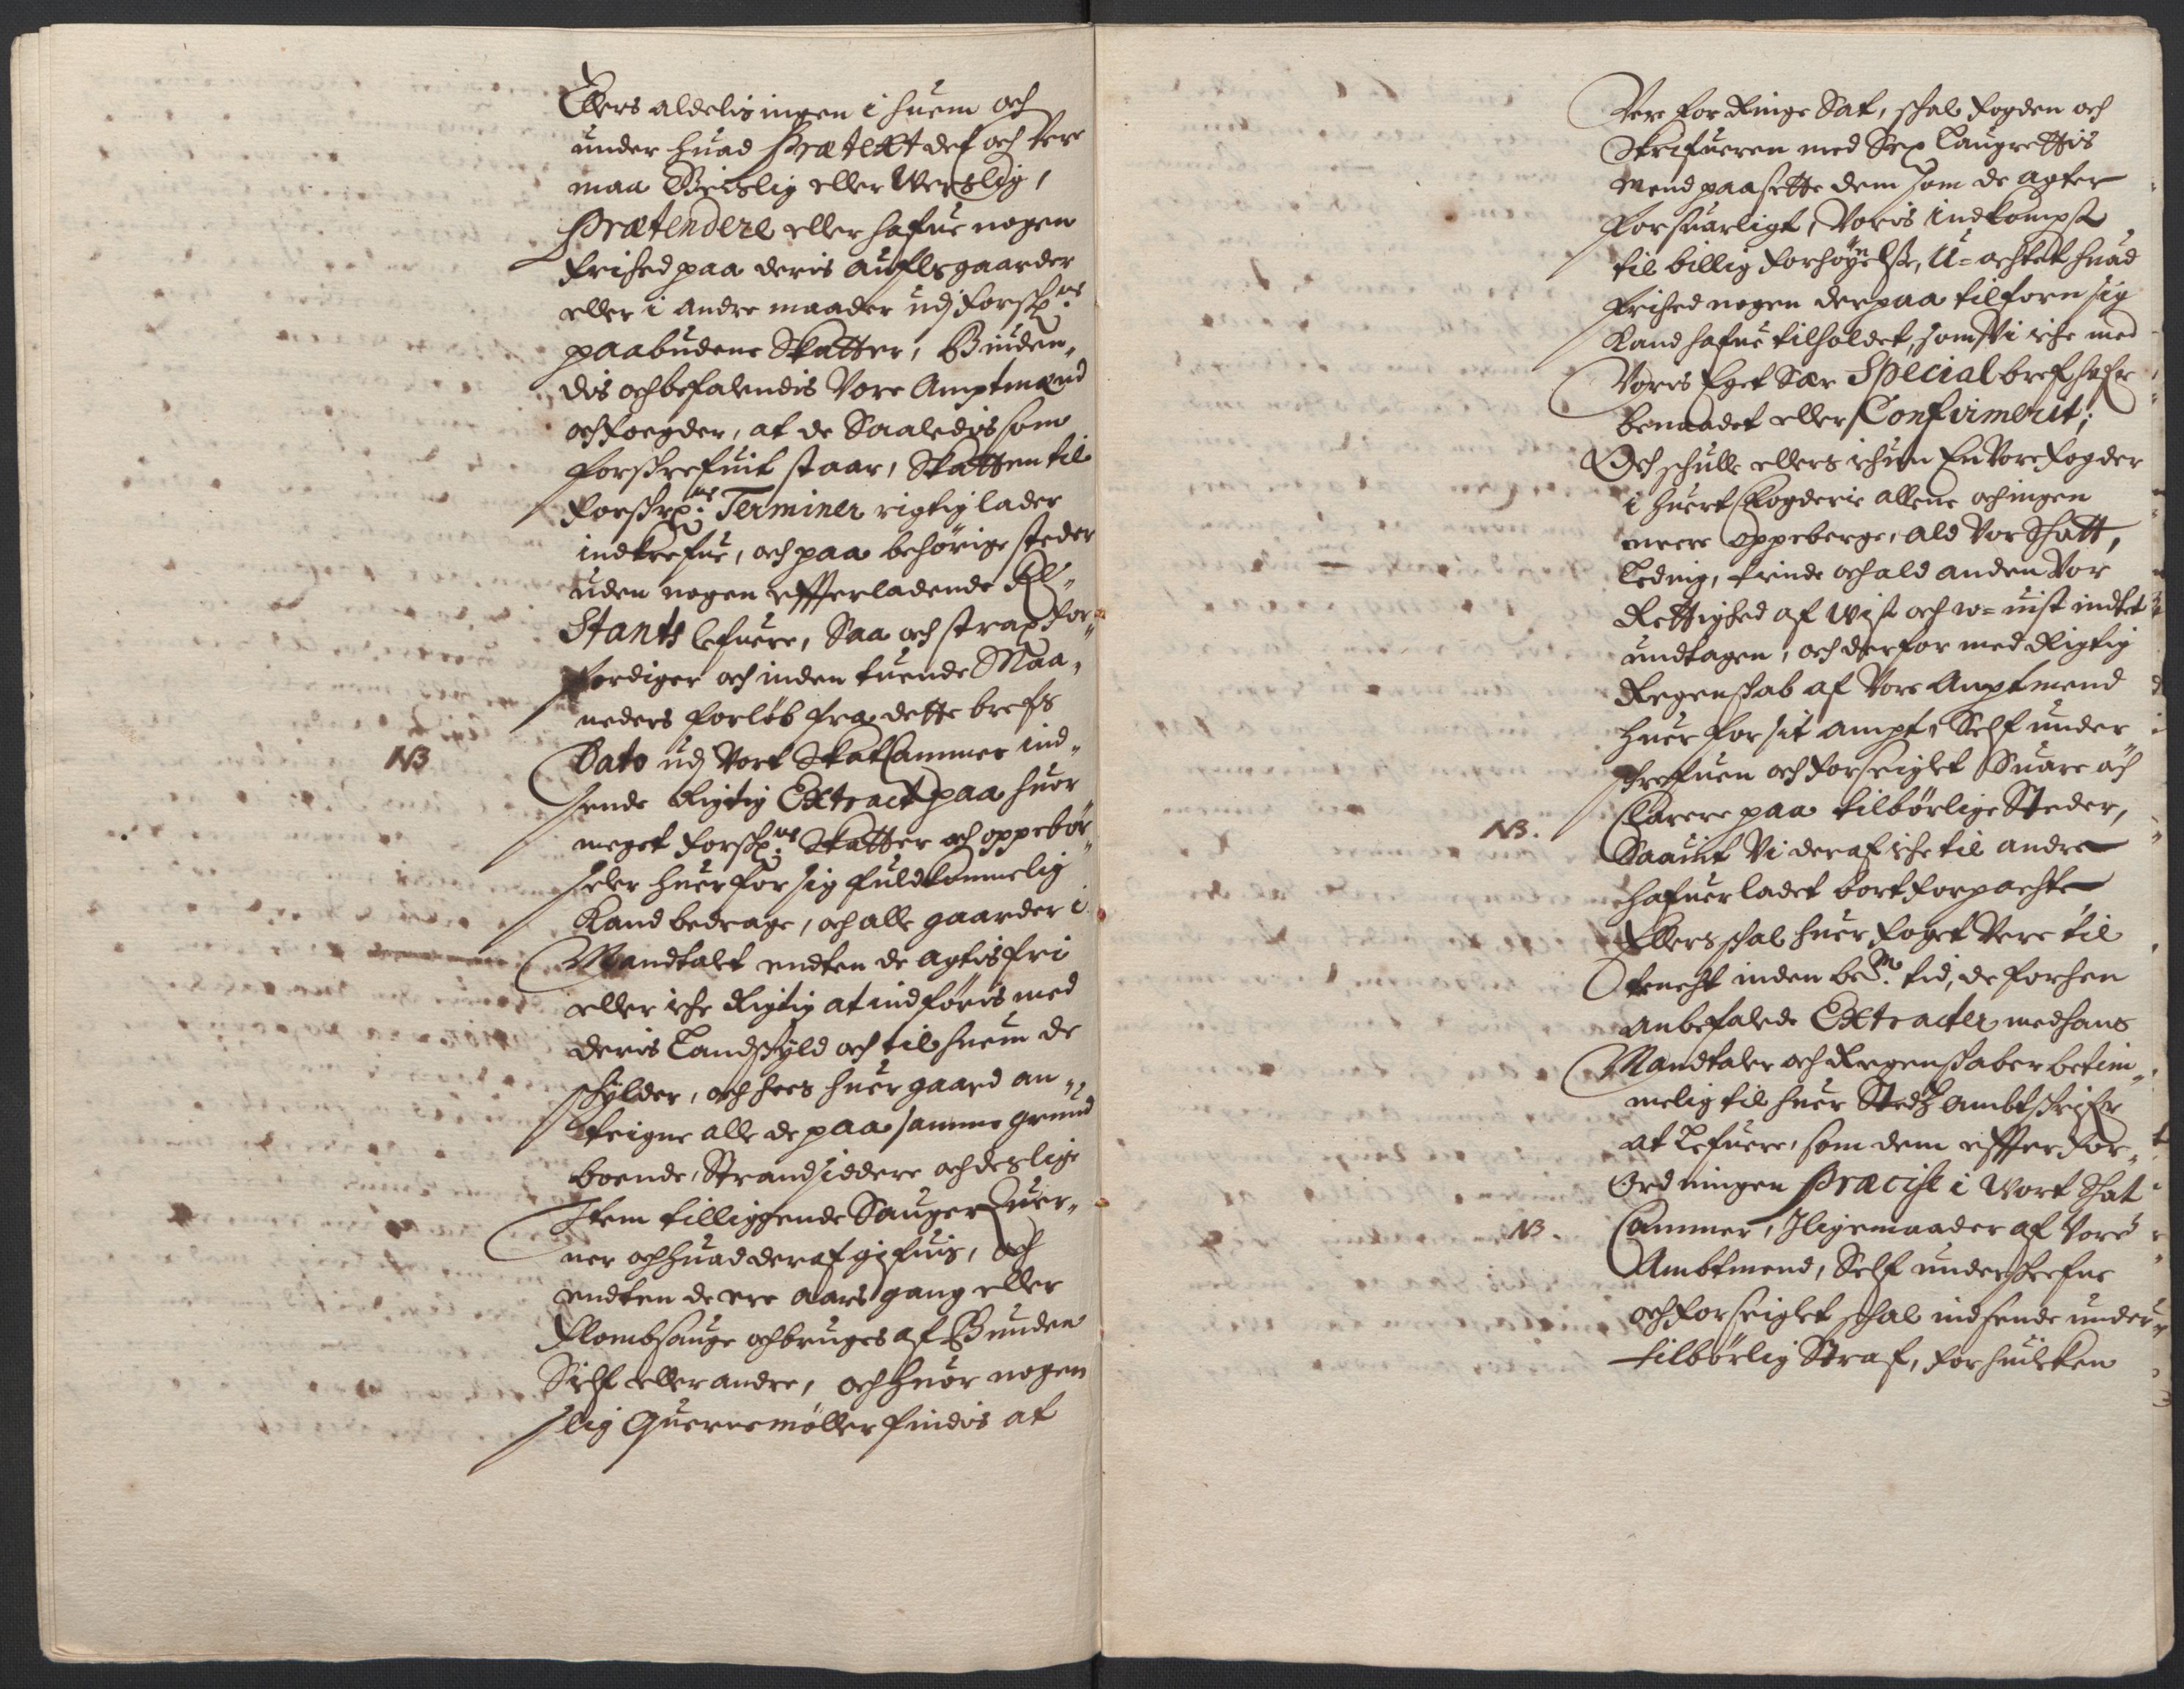 Ellers aldelis ingen i huem och
under huad Prætext det och vere
maa Geistlig eller Werslig,
Prætendere eller hafue nogen
frihed paa deris aufls gaarder
eller i andre maader udj forschr:ne
paabudene Skatter, Biuden„
dis och befalendis Vore Amptmænd
och Foegder, at de Saaledis som
forskrefuit staar, Skatten til
forskr:ne Terminer rigtig lader
indkrefue, och paa behörige steder
uden nogen effterladende Re„
Stants lefuere, Saa och strax for„
ferdiger och inden tuende Maa„
neders forlöb fra dette brefs
NB Dato udj Vort Skatkammer ind„
sende Rigtig Extract paa huor
meget forschr:ne Skatter och oppebör„
seler huer for sig fuldkommelig
Kand bedrage, och alle gaarder i
Mandtalt endten de agtis fri
eller iche Rigtig at indföris med
deris Landskyld och til huem de
schylder, och hoes huer gaard an„
teigne alle de paa samme grund
boende, Strandsiddere och deslige
Item tilliggende Sauger Quer„
ner och huad deraf gifuis, och
endten de ere aars gang eller
flombsauge och bruges af Bunden
Sielf eller andre, och huor nogen
slig Querne möller findis at
Vere for Ringe Sat, schal fogden och
Skrifueren med Sex Laugrettis
Mend paasette dem som de agter
forsuarligt, Voris indkompst
til billig forhöyelse, U=achtet huad
frihed nogen derpaa tilforn sig
Kand hafue tilholdet, som Vi iche med
Voris Eget Sær Special bref hafr
benaadet eller Confirmerit;
Och schulle ellers ichun En Vore fogder
i huert fogderie allene och ingen
meere oppeberge, ald Vor Schatt,
Leding, tiende och ald anden Vor
Rettighed af Wist och w=uist indtet
undtagen, och derfor med Rigtig
Regenskab af Vore Amptmend
huer for sit ampt, Self under
schrefuen och forseiglet Suare och
NB. Clarere paa tilbörlige Steder,
Saauit Vi deraf iche til andre
hafuer ladet bortforpachte
Ellers schal huer foget Vere til
tencht inden be:te tid, de forhen
anbefalede Extracter med hans
Mandtaler och Regenskaber betim„
melig til huer Stedz Ambtskrifr
at Lefuere, som dem effter for„
Ordningen Præcise i Wort Schat
NB. Cammer, Iligemaader af Vore
Ambtmend, Self underskrefne
och forseiglet schal indsende under
tilbörlig Straf, for huilcken